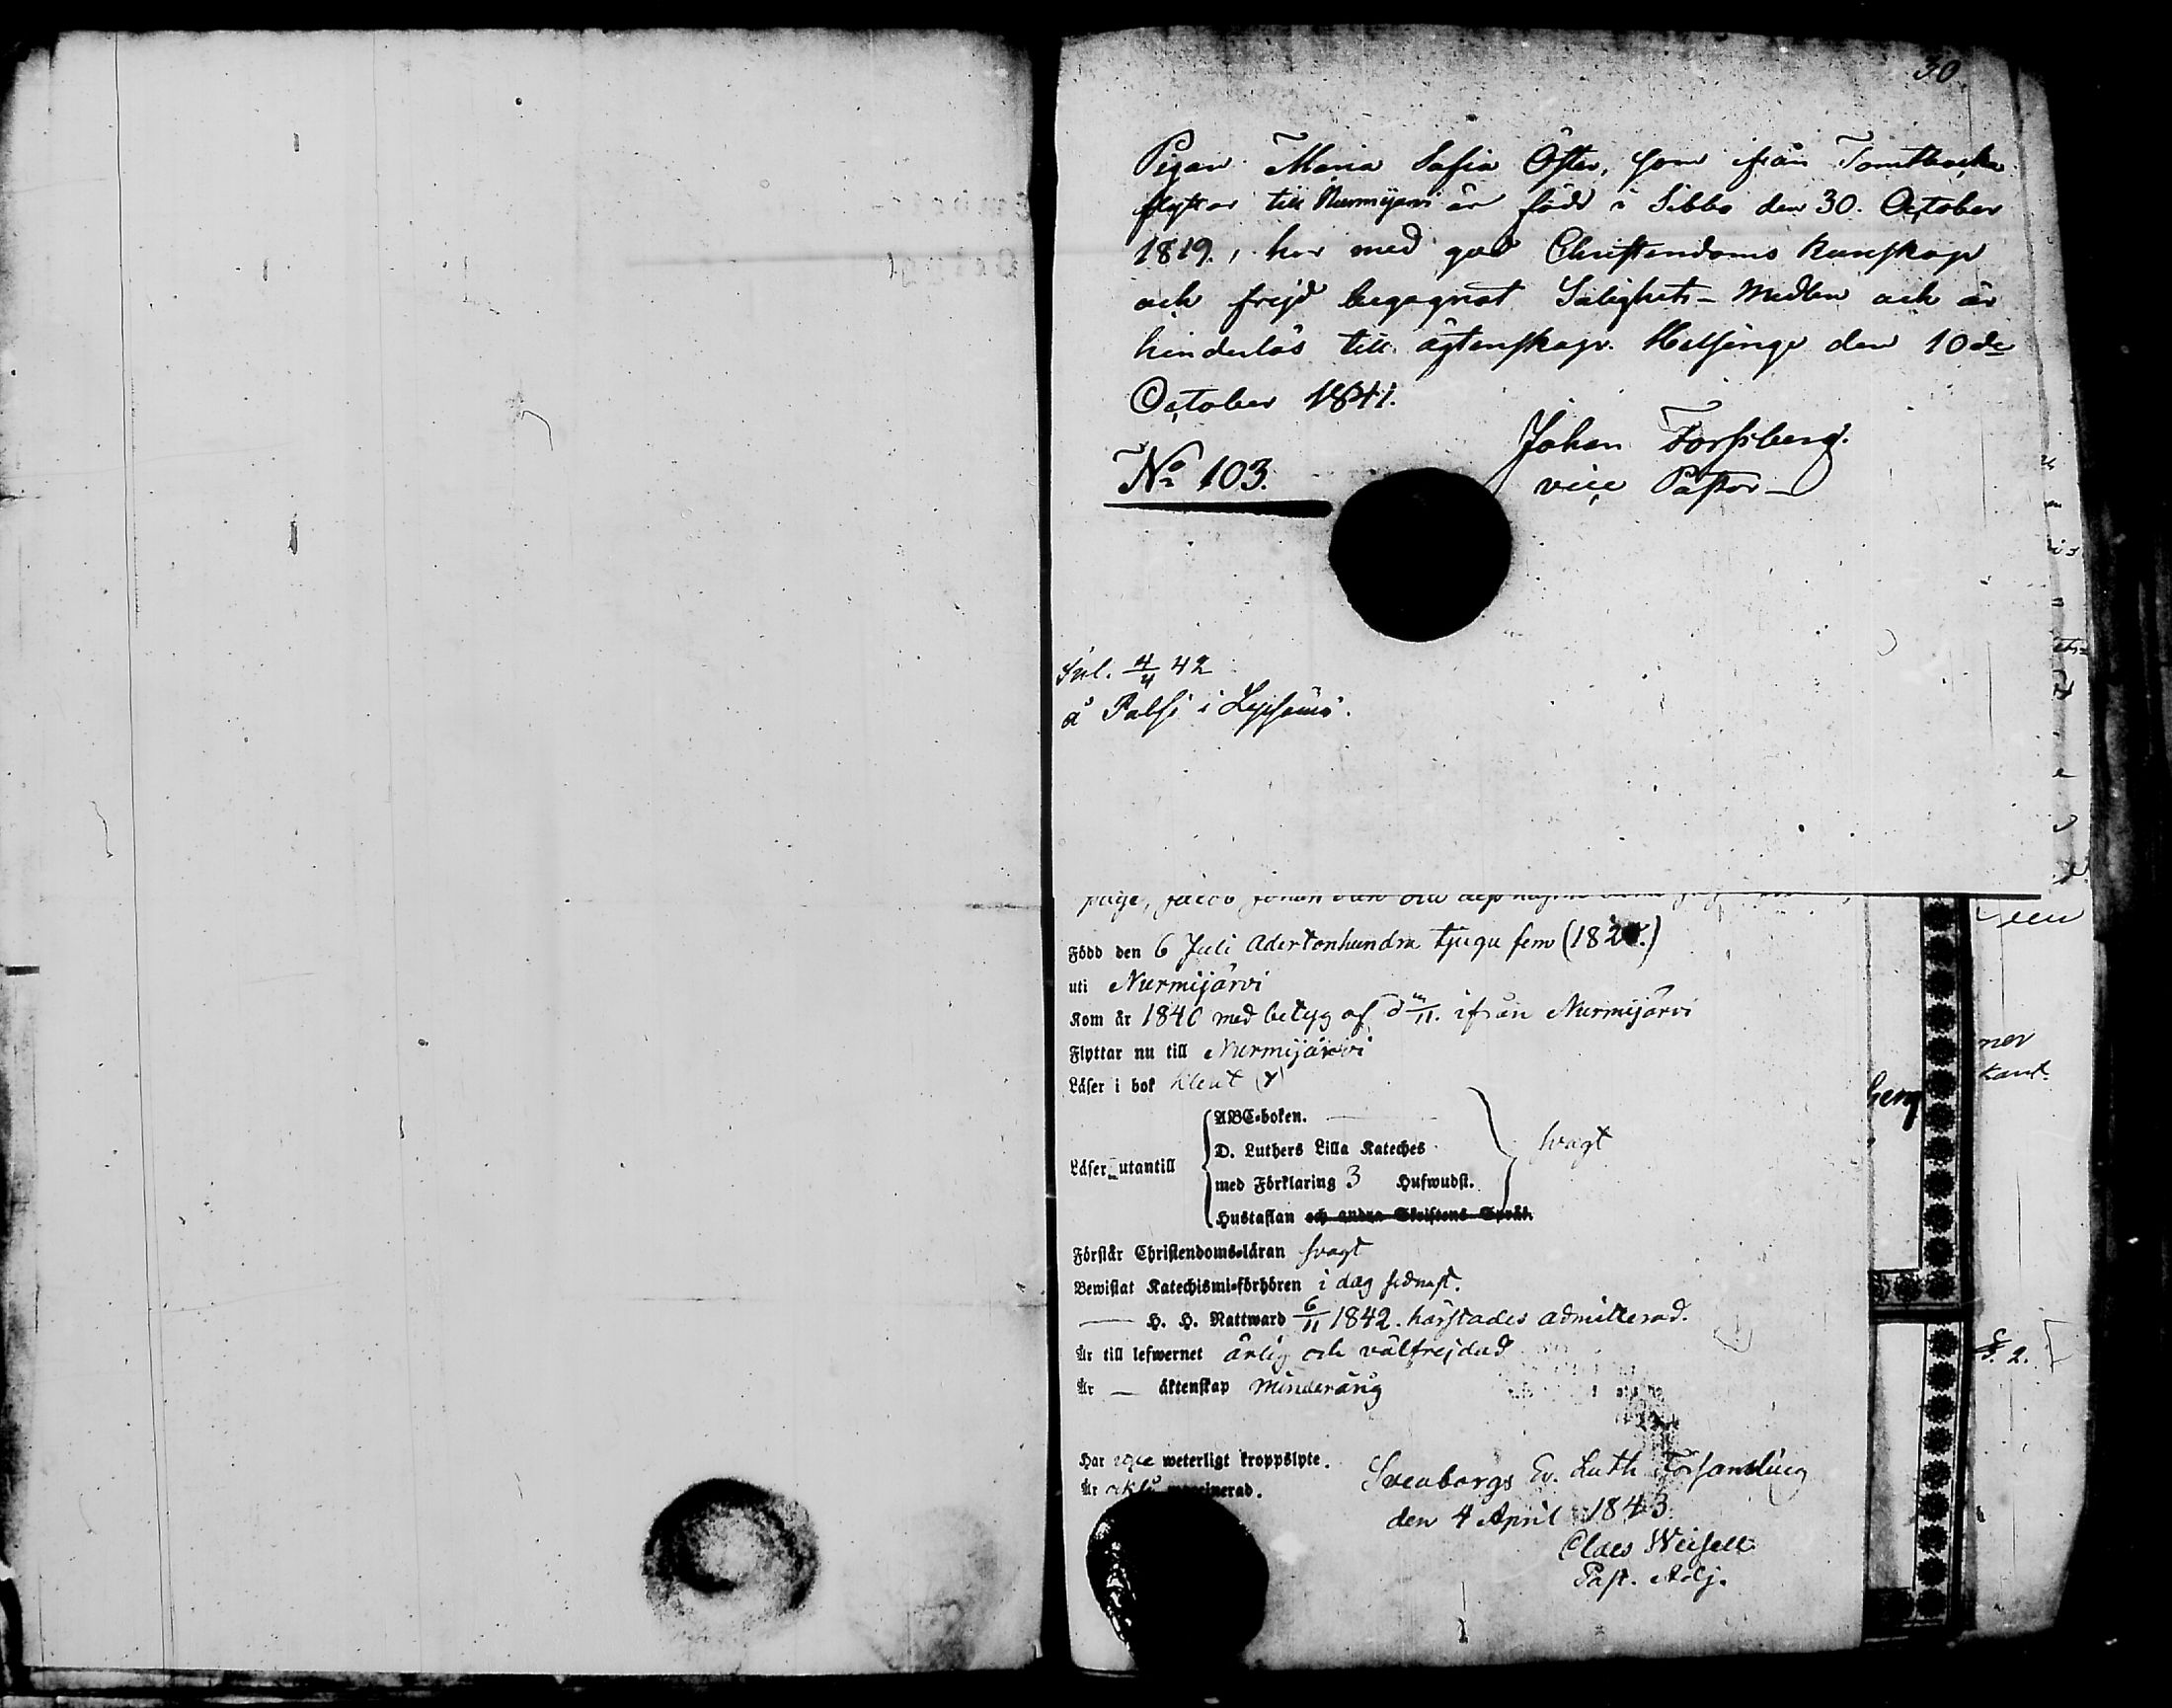 30
Pigan Maria Sofia Öster, som från Tomtbacka
flyttar till Nurmijärvi är född i Sibbo den 30. October
1819., har med god Christendoms kunskap
och frejd begagnat Salighets-Medlen och är
hinderlös till ägtenskap. Helsinge den 10de
October 1841.
Johan Forssberg.
vice Pastor
No 103.
Inl. 4/4 42
å Palsi i Lepsämä.
Född den 6 Juli Adertonhundra tjugu fem (182
uti Nurmijärvi
Kom år 1840 med betyg af ifrån Nurmijärvi
Flyttar nu till Nurmijärvi
Läser i bok klent
Läser utantill
ABC-boken.
D. Luthers Lilla Kateches
med Förklaring 3 Hufwudst.
Hustaflan och andra Skriftens Språk.
svagt
Förstår Christendoms-läran svagt
Bewistat Katechismi-förhören i dag sednast.
H. H. Nattward 6/11 1842. härstädes admitterad.
Är till lefwernet ärlig och välfrejdad
Är — äktenskap Minderårig
Har weterligt kroppslyte.
Är
Sveaborgs Ev. Luth. Församling
den 4 April 1843.
Claes Weisell
Past. Adj.
een
ner
kant.
berg
S. 2.